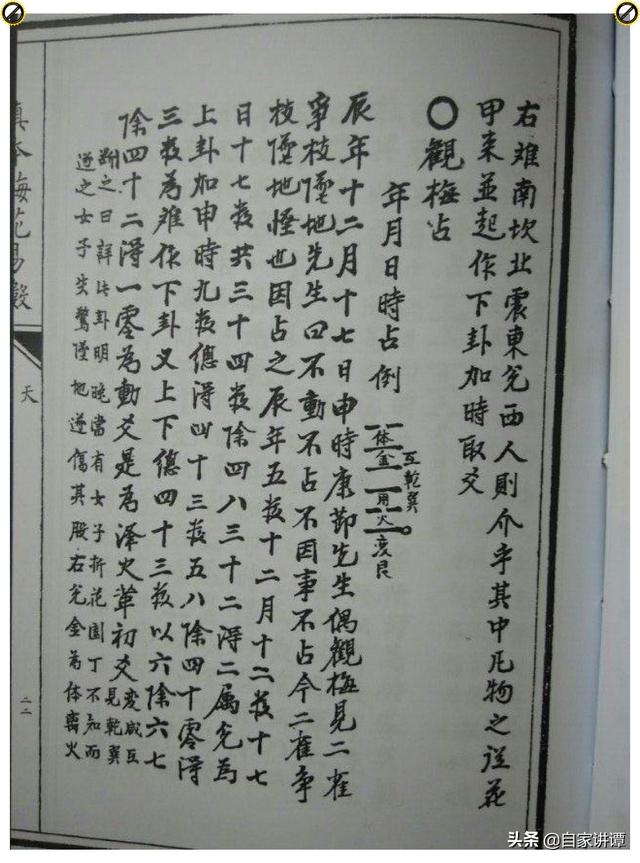 右離南坎北震東兌西人則介乎其中凡物之從花
甲來並起作下卦加時取爻
○觀梅占
年月日時占例
互乾巽
体金
用火
变艮
辰年十二月十七日申時康節先生偶觀梅見二雀
爭枝墜地先生曰不動不占不因事不占今二雀爭
枝墜地怪也因占之辰年五数十二月十二数十七
日十七数共三十四数除四八三十二得二属兌為
上卦加申時九数總得四十三数五八除四十零得
三数為離作下卦又上下總四十三数以六除六七
除四十二得一零為動爻是為澤火革初爻変咸互
見乾巽
断之曰詳此卦明晚當有女子折花園丁不知而
逐之女子失驚墜地遂傷其股右兌金為体离火
真本梅花易數
天
二二
头条 @自家讲谭